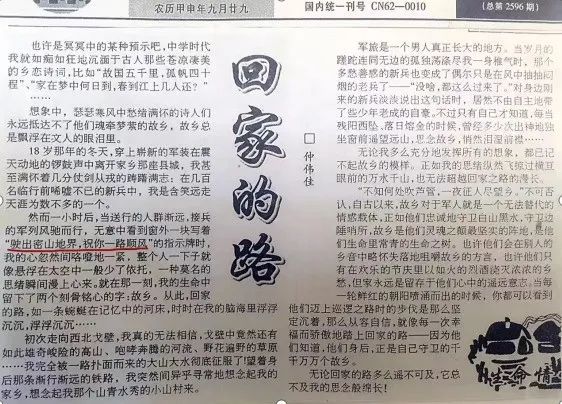 农历甲申年九月廿九
国内统一刊号 CN62—0010
(总第2596期)
回家的路
□ 仲伟佳
也许是冥冥中的某种预示吧,中学时代
我就如痴如狂地沉湎于古人那些苍凉凄美
的乡恋诗词,比如“故国五千里,孤帆四十
程”、“家在梦中何日到,春到江上几人还?”
……
想象中,瑟瑟寒风中愁绪满怀的诗人们
永远抵达不了他们魂牵梦萦的故乡,故乡总
是飘浮在文人的眼泪里。
18岁那年的冬天,穿上崭新的军装在震
天动地的锣鼓声中离开家乡那座县城,我甚
至满怀着几分仗剑从戎的踌躇满志;在几百
名临行前唏嘘不已的新兵中,我是含笑远走
天涯为数不多的一个。
然而一小时后,当送行的人群渐远,接兵
的军列风驰而行,无意中看到窗外一块写着
“驶出密山地界,祝你一路顺风”的指示牌时,
我的心忽然间咯噔地一紧,整个人一下子就
像悬浮在太空中一般少了依托,一种莫名的
思绪瞬间漫上心来。就在那一刻,我的生命中
留下了两个刻骨铭心的字:故乡。从此,回家
的路,如一条蜿蜒在记忆中的河床,时时在我的脑海里浮浮
沉沉,浮浮沉沉……
初次走向西北戈壁,我真的无法相信,戈壁中竟然还有
如此雄奇峻险的高山、咆哮奔腾的河流、野花遍野的草原
……我完全被一路扑面而来的大山大水彻底征服了!望着身
后那条渐行渐远的铁路,我突然间异乎寻常地想念起我的
家乡,想念起我那个山青水秀的小山村来。
军旅是一个男人真正长大的地方。当岁月的
蹉跎连同无边的孤独荡涤尽我一身稚气时,那个
多愁善感的新兵也变成了偶尔只是在风中抽抽闷
烟的老兵了——“没啥,都这么过来了。”对身边刚
来的新兵淡淡说出这句话时,居然不由自主地带
了些少年老成的自豪。不过只有自己才知道,每当
残阳西坠、落日熔金的时候,曾经多少次出神地独
坐窗前遥望远山,思念故乡,悄然泪湿前襟……
无论我多么充分地发挥所有的想象,都已记
不起故乡的模样。正如我的思绪纵然飞掠过横亘
眼前的万水千山,也无法超越回家之路的漫长。
“不知何处吹芦管,一夜征人尽望乡。”不可否
认,自古以来,故乡对于军人就是一个无法替代的
情感载体,正如他们忠诚地守卫自山黑水,守卫边
陲哨所,故乡是他们灵魂之颠最坚实的阵地,是他
们生命里常青的生命之树。也许他们会在别人的
乡音中略怀失落地咀嚼故乡的方言,也许他们只
有在欢乐的节庆里以如火的烈酒浇灭浓浓的乡
愁,但家永远是留存于他们心中的遥远意志。当每
一轮鲜红的朝阳喷涌而出的时候,你都可以看到
他们迈上巡逻之路时的步伐是那么坚
定沉着,那么从容自信,就像每一次幸
福而骄傲地踏上回家的路——因为他
们知道,他们身后,正是自己守卫的千
千万万个故乡。
无论回家的路多么遥不可及,它总
不及我的思念般绵长!
生命情